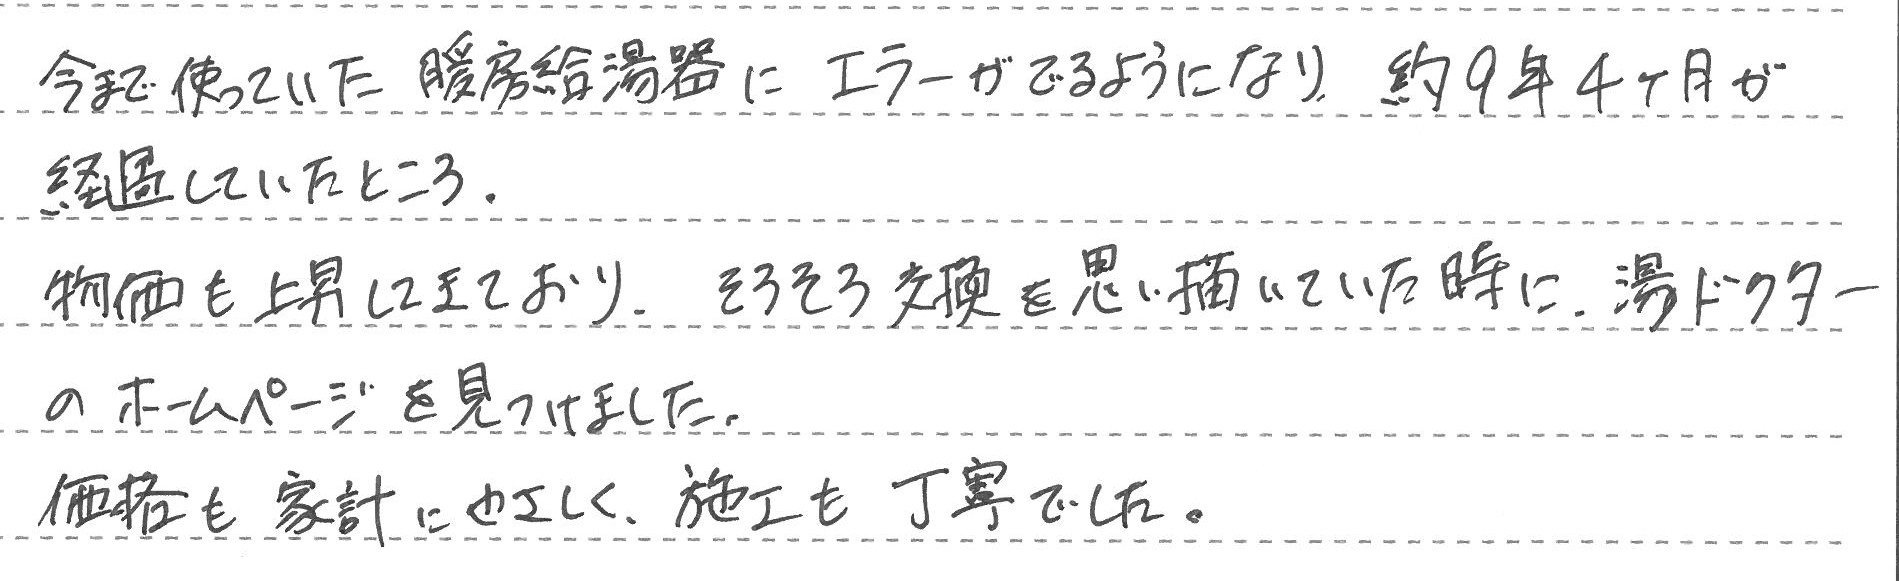 今まで使っていた暖房給湯器にエラーがでるようになり、約9年4ヶ月が
経過していたところ。
物価も上昇してきており、そろそろ交換を思い描いていた時に、湯ドクター
のホームページを見つけました。
価格も家計にやさしく、施工も丁寧でした。